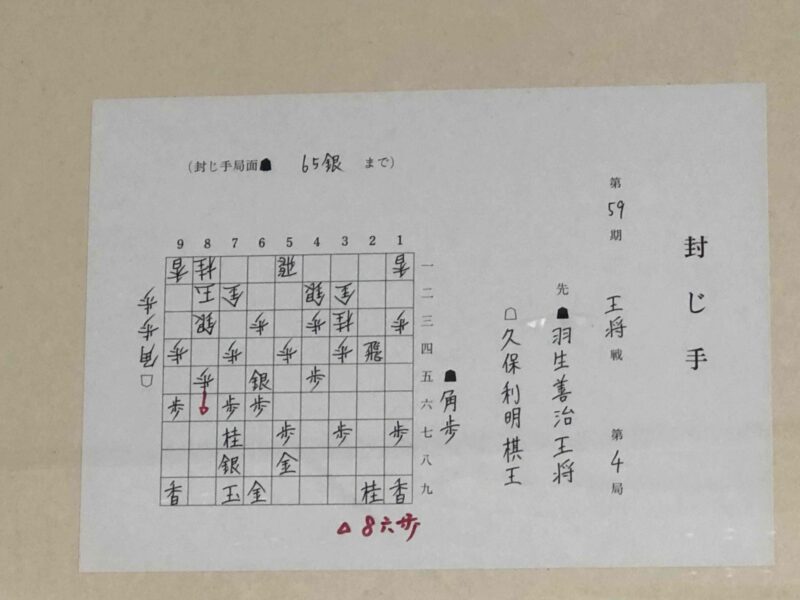 封じ手
第59期 王将戦 第4局
先☗羽生善治王将
☖久保利明棋王
(封じ手局面☗ 65銀 まで)
9 8 7 6 5 4 3 2 1
香 桂 飛 香 一
玉 金 銀 金 二
銀 歩 歩 桂 歩 三
歩 歩 歩 歩 飛 四
歩 銀 歩 五
歩 歩 歩 六
桂 歩 歩 歩 七
銀 金 八
香 玉 金 桂 香 九
☗角歩
☖角歩歩
△8六歩